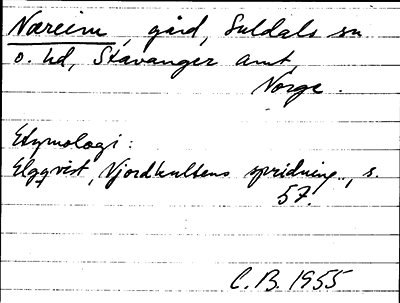 Næreim, gård, Suldals sn
o. hd, Stavanger amt,
Norge.
Etymologi:
Elgqvist, Njordkultens spridning.., s.
57.
C.B. 1955